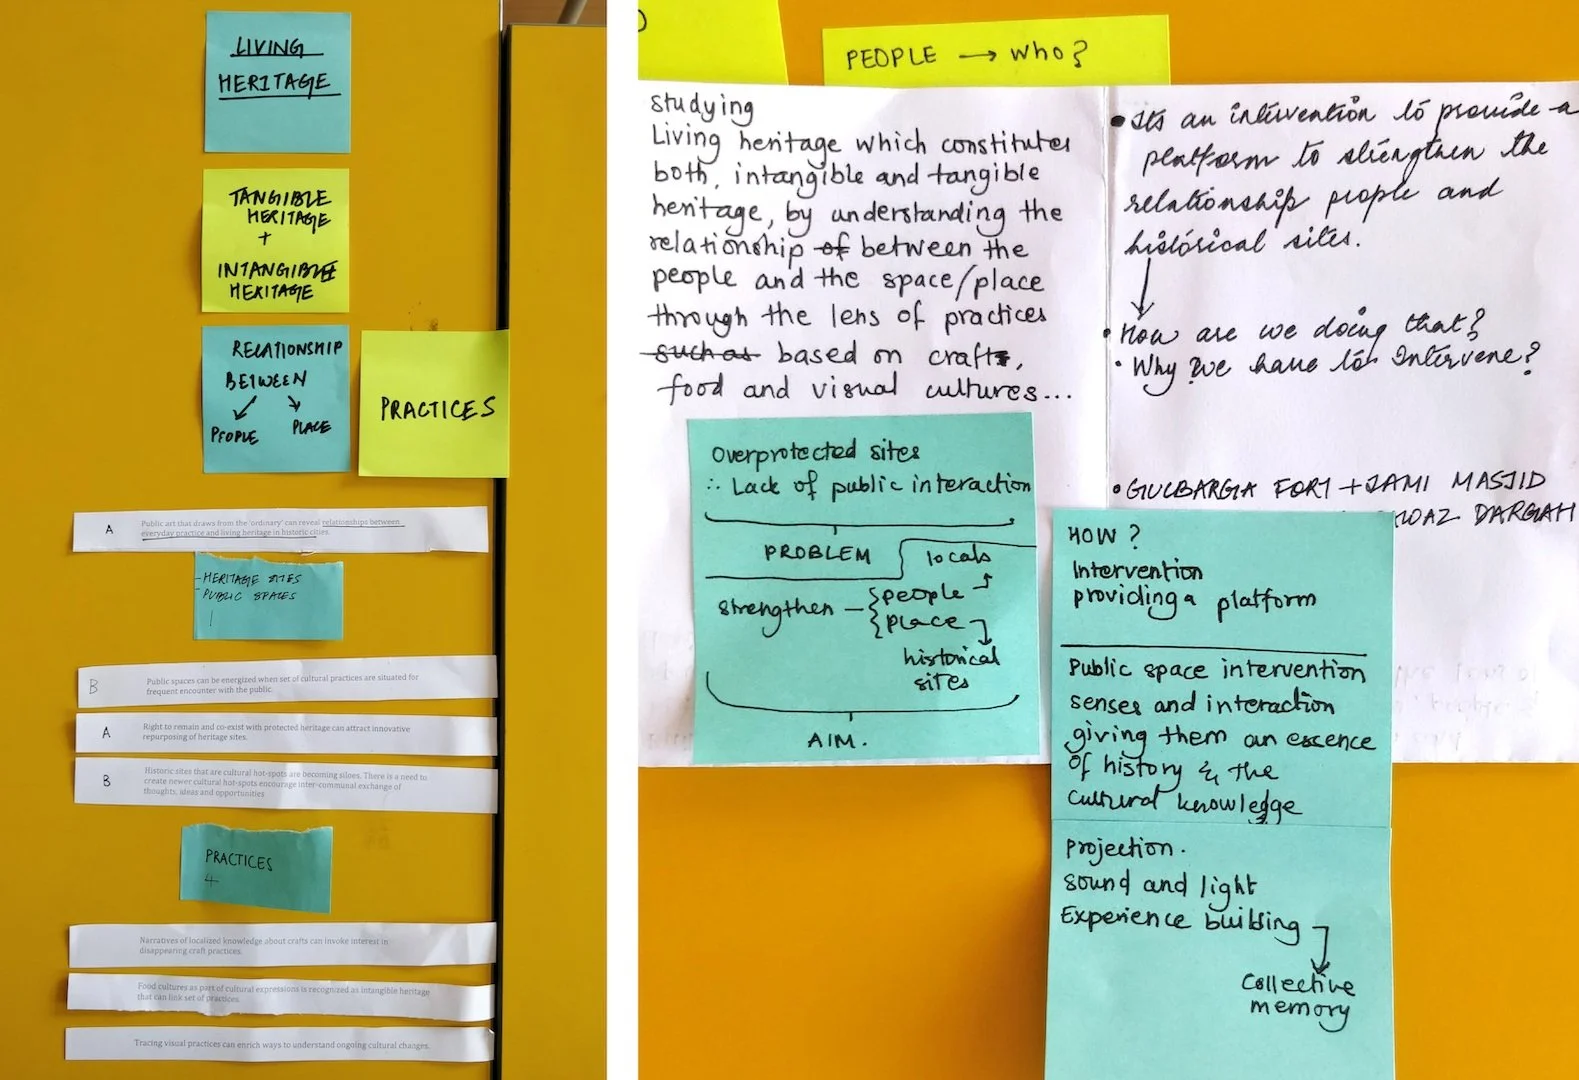 LIVING
HERITAGE
TANGIBLE
HERITAGE
+
INTANGIBLE
HERITAGE
RELATIONSHIP
BETWEEN
PEOPLE
PLACE
PRACTICES
A
Public art that draws from the 'ordinary' can reveal relationships between
everyday practice and living heritage in historic cities.
-HERITAGE SITES
-PUBLIC SPACES
B
Public spaces can be energized when set of cultural practices are situated for
frequent encounter with the public.
A
Right to remain and co-exist with protected heritage can attract innovative
repurposing of heritage sites.
B
Historic sites that are cultural hot-spots are becoming siloes. There is a need to
create newer cultural hot-spots encourage inter-communal exchange of
thoughts, ideas and opportunities
PRACTICES
4
Narratives of localized knowledge about crafts can invoke interest in
disappearing craft practices.
Food cultures as part of cultural expressions is recognized as intangible heritage
that can link set of practices.
Tracing visual practices can enrich ways to understand ongoing cultural changes.
PEOPLE → Who?
studying
Living heritage which constitutes
both, intangible and tangible
heritage, by understanding the
relationship of between the
people and the space/place
through the lens of practices
such as based on crafts,
food and visual cultures...
• Its an intervention to provide a
platform to strengthen the
relationship people and
historical sites.
• How are we doing that?
• Why we have to Intervene?
• GULBARGA FORT + JAMI MASJID
DARGAH
Overprotected sites
∴ Lack of public interaction
PROBLEM
locals
strengthen – { people
{ place
historical
sites
AIM.
HOW?
Intervention
providing a platform
Public space intervention
senses and interaction
giving them an essence
of history & the
cultural knowledge
Projection.
sound and light
Experience building
Collective
memory